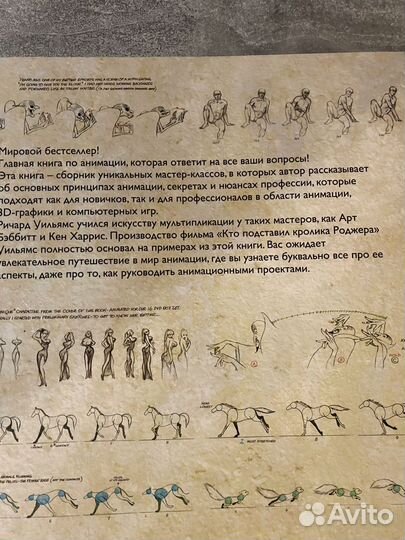 Мировой бестселлер!
Главная книга по анимации, которая ответит на все ваши вопросы!
Эта книга – сборник уникальных мастер-классов, в которых автор рассказывает
об основных принципах анимации, секретах и нюансах профессии, которые
подходят как для новичков, так и для профессионалов в области анимации,
3D-графики и компьютерных игр.
Ричард Уильямс учился искусству мультипликации у таких мастеров, как Арт
Бэббитт и Кен Харрис. Производство фильма «Кто подставил кролика Роджера»
Уильямс полностью основал на примерах из этой книги. Вас ожидает
увлекательное путешествие в мир анимации, где вы узнаете буквально все про ее
аспекты, даже про то, как руководить анимационными проектами.
CHARACTER FROM THE COVER OF THIS BOOK - ANIMATED FOR OUR 16 DVD BOX SET.
Avito